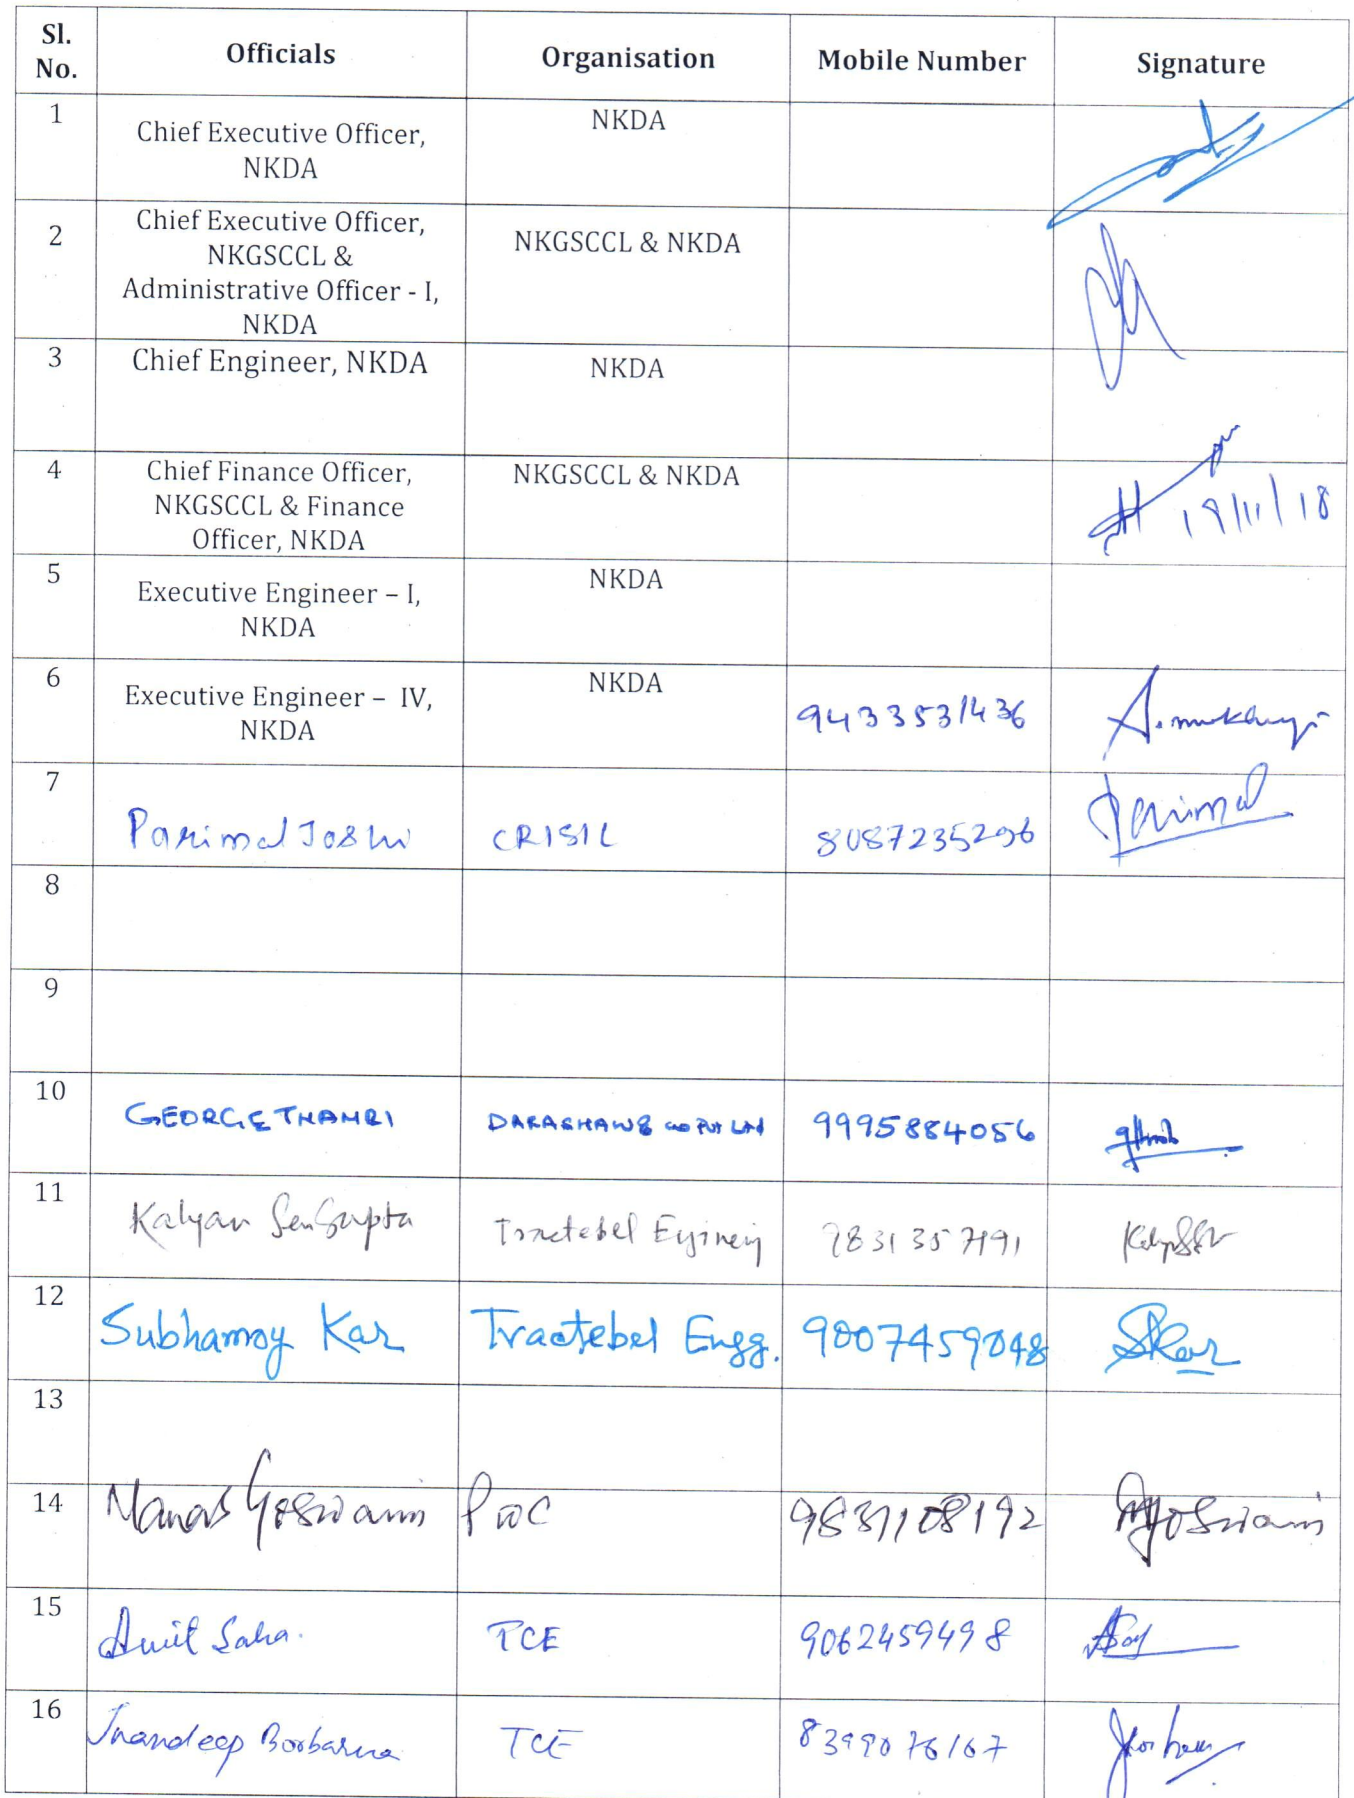 Sl. No. Officials Organisation Mobile Number Signature
1 Chief Executive Officer, NKDA
NKDA
2 Chief Executive Officer, NKGSCCL & NKDA
NKGSCCL &
Administrative Officer - I,
NKDA
3 Chief Engineer, NKDA NKDA
4 Chief Finance Officer, NKGSCCL & NKDA
NKGSCCL & Finance 19/11/18
Officer, NKDA
5 Executive Engineer – I, NKDA
NKDA
6 Executive Engineer – IV, NKDA 9433531436 A. mukherji
NKDA
7 Parimal Joshi CRISIL 8087235296 Parimal
8
9
10 GEORGE THAMBI DARASHAW & CO PVT Ltd 9995884056
11 Kalyan SenGupta Tractebel 
12 Subhamoy Kar Tractebel Engg. 9007459048 SKar
13
14 Manas Goswami PwC 9831108192 MGoswami
15 Amit Saha. TCE 9062459498
16 Jnandeep Borbarua TCE 8399076167